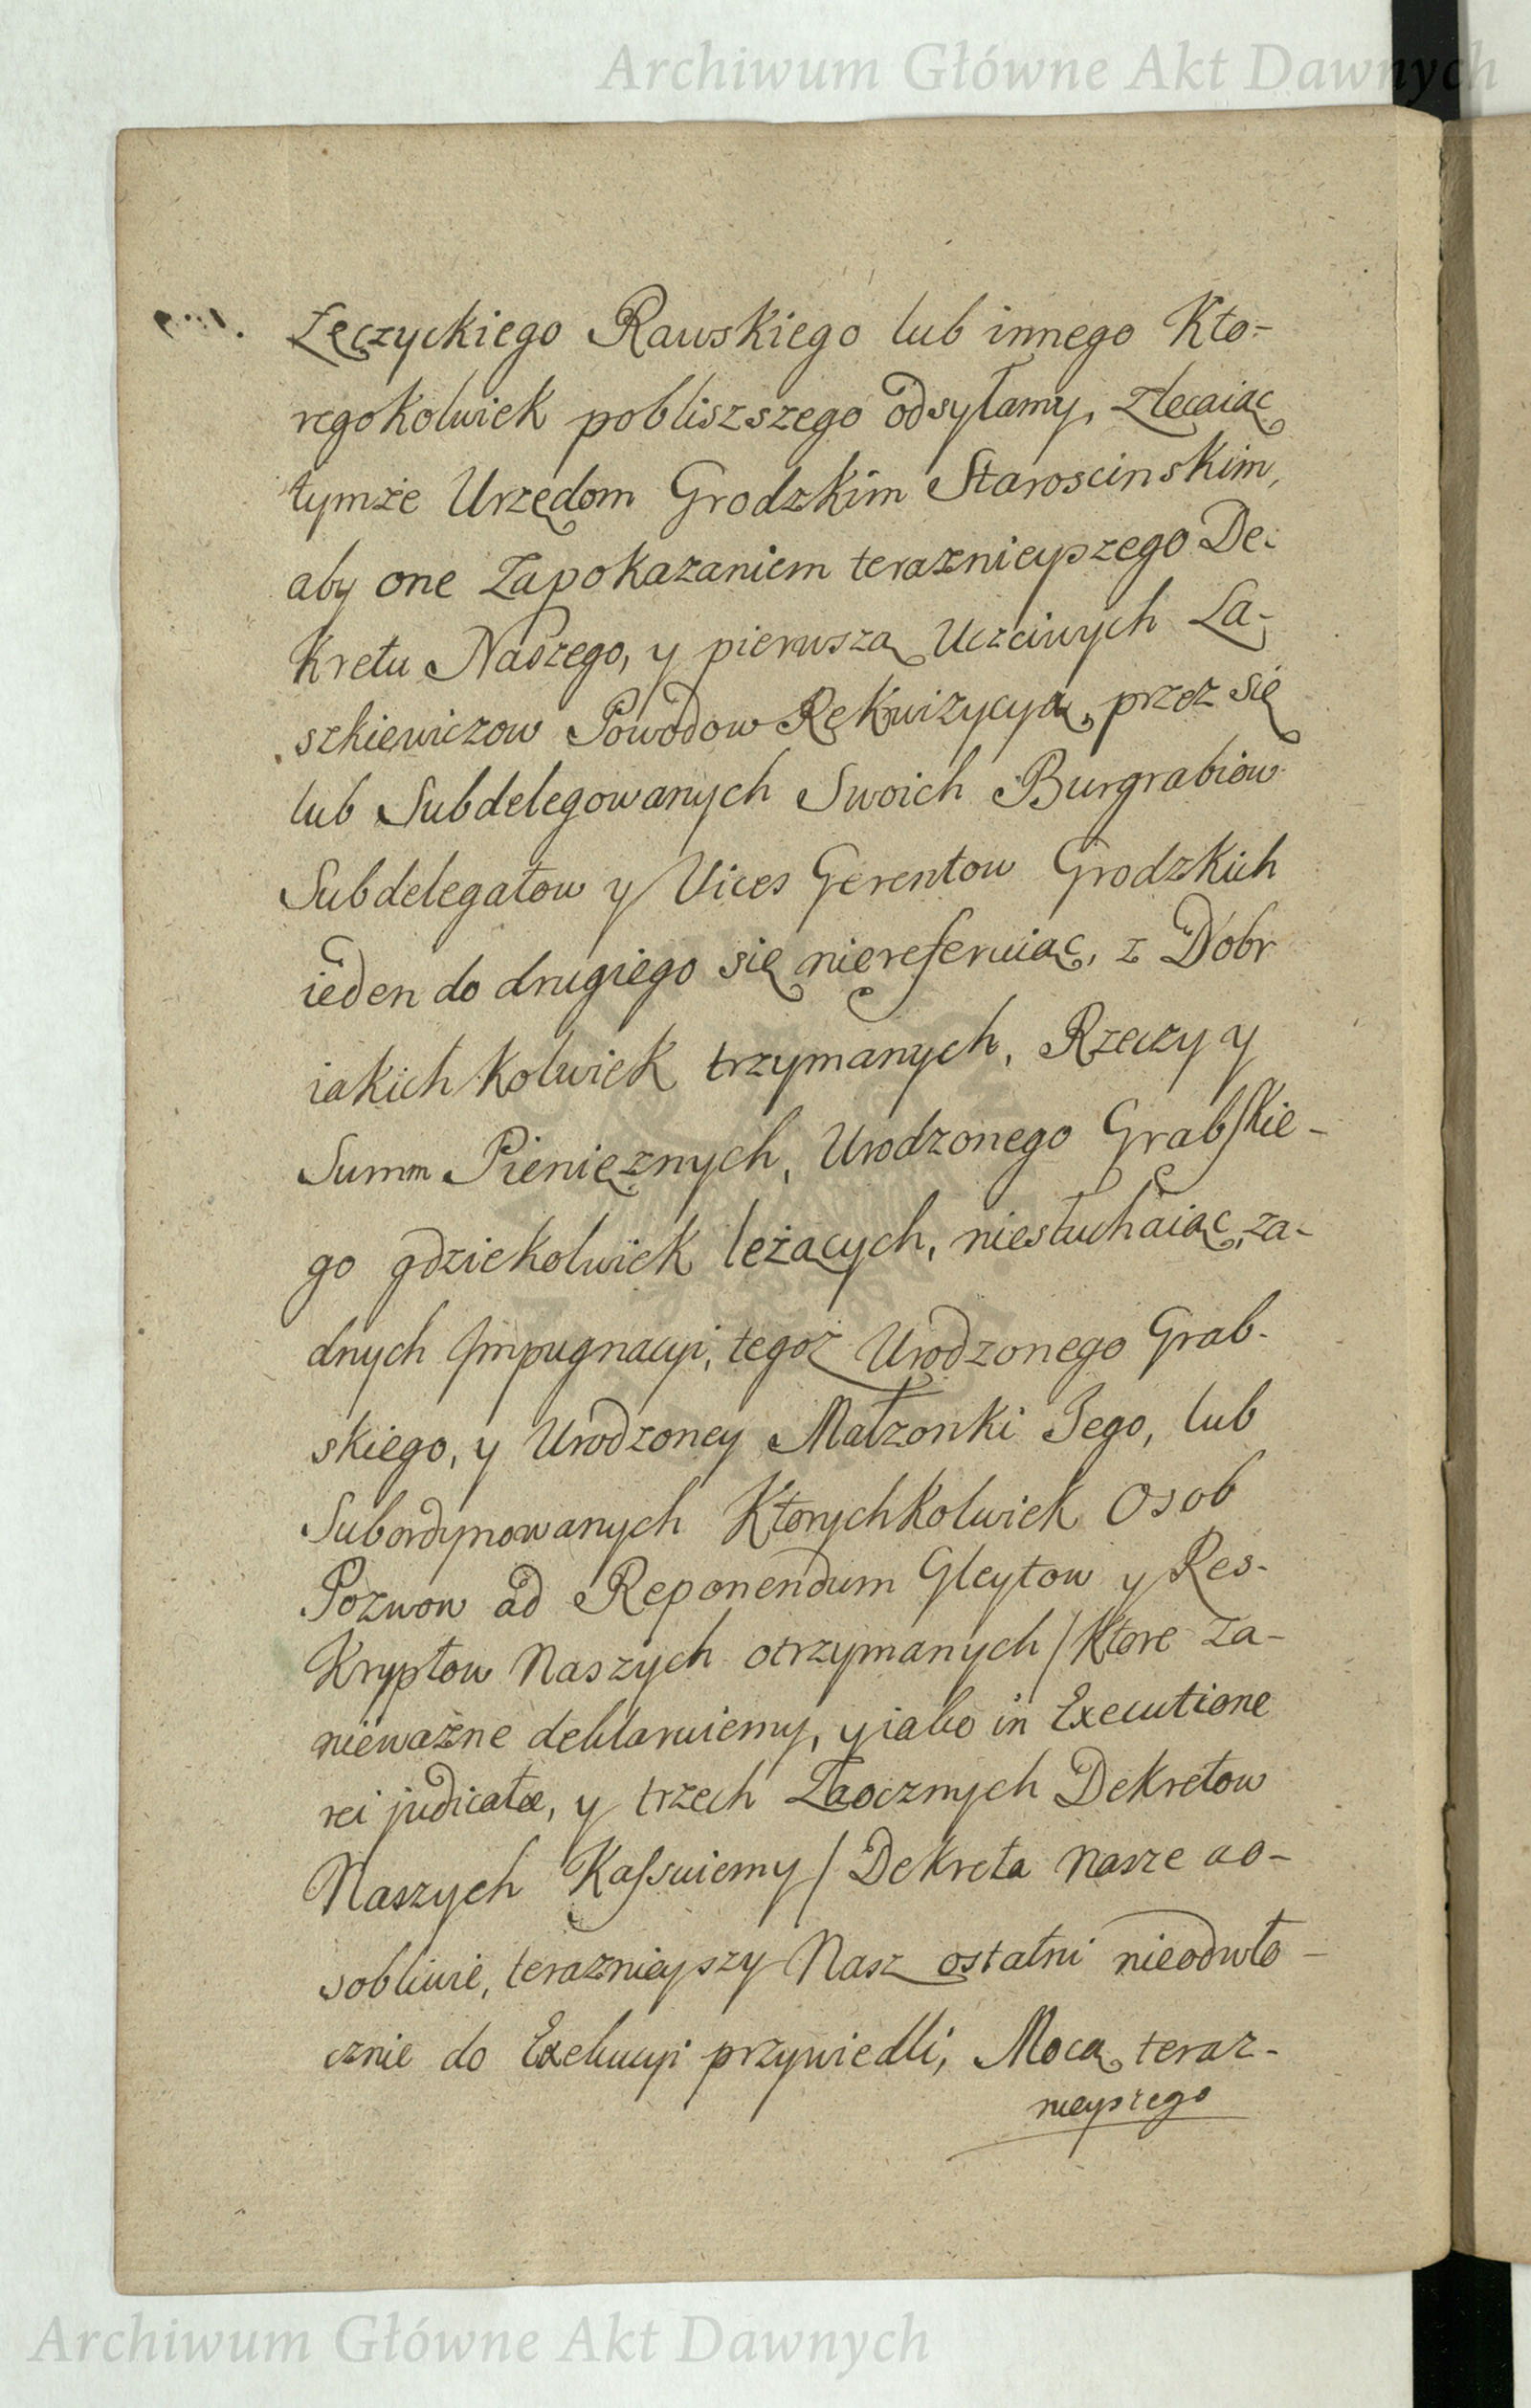 Archiwum Główne Akt Dawnych
Łęczyckiego Rawskiego lub innego Kto-
regokolwiek pobliszszego odsyłamy, zlecaiąc
tymże Urzędom Grodzkim Staroscinskim,
aby one Zapokazaniem teraznieyszego De-
kretu Naszego, y pierwszą Uczciwych La-
szkiewiczow Powodow Rekwizycyą, przez się
lub Subdelegowanych Swoich Burgrabiow
Subdelegatow y Vices Gerentow Grodzkich
ieden do drugiego się niereferuiąc, z Dobr
iakichkolwiek trzymanych, Rzeczy y
Summ Pienięznych, Urodzonego Grabskie-
go gdziekolwiek leżących, niesłuchaiąc, za-
dnych Impugnacyi, tegoż Urodzonego Grab-
skiego, y Urodzoney Małzonki Jego, lub
Subordynowanych Ktorychkolwiek Osob
Pozwow ad Reponendum Gleytow y Res-
kryptow Naszych otrzymanych / Ktore za-
nieważne deklaruiemy, y iako in Executione
rei judicatæ, y trzech Zaocznych Dekretow
Naszych Kassuiemy / Dekreta nasze ao-
sobliwie, teraznieyszy Nasz ostatni nieodwło-
cznie do Exekucyi przywiedli, Mocą teraz-
nieyszego
Archiwum Główne Akt Dawnych